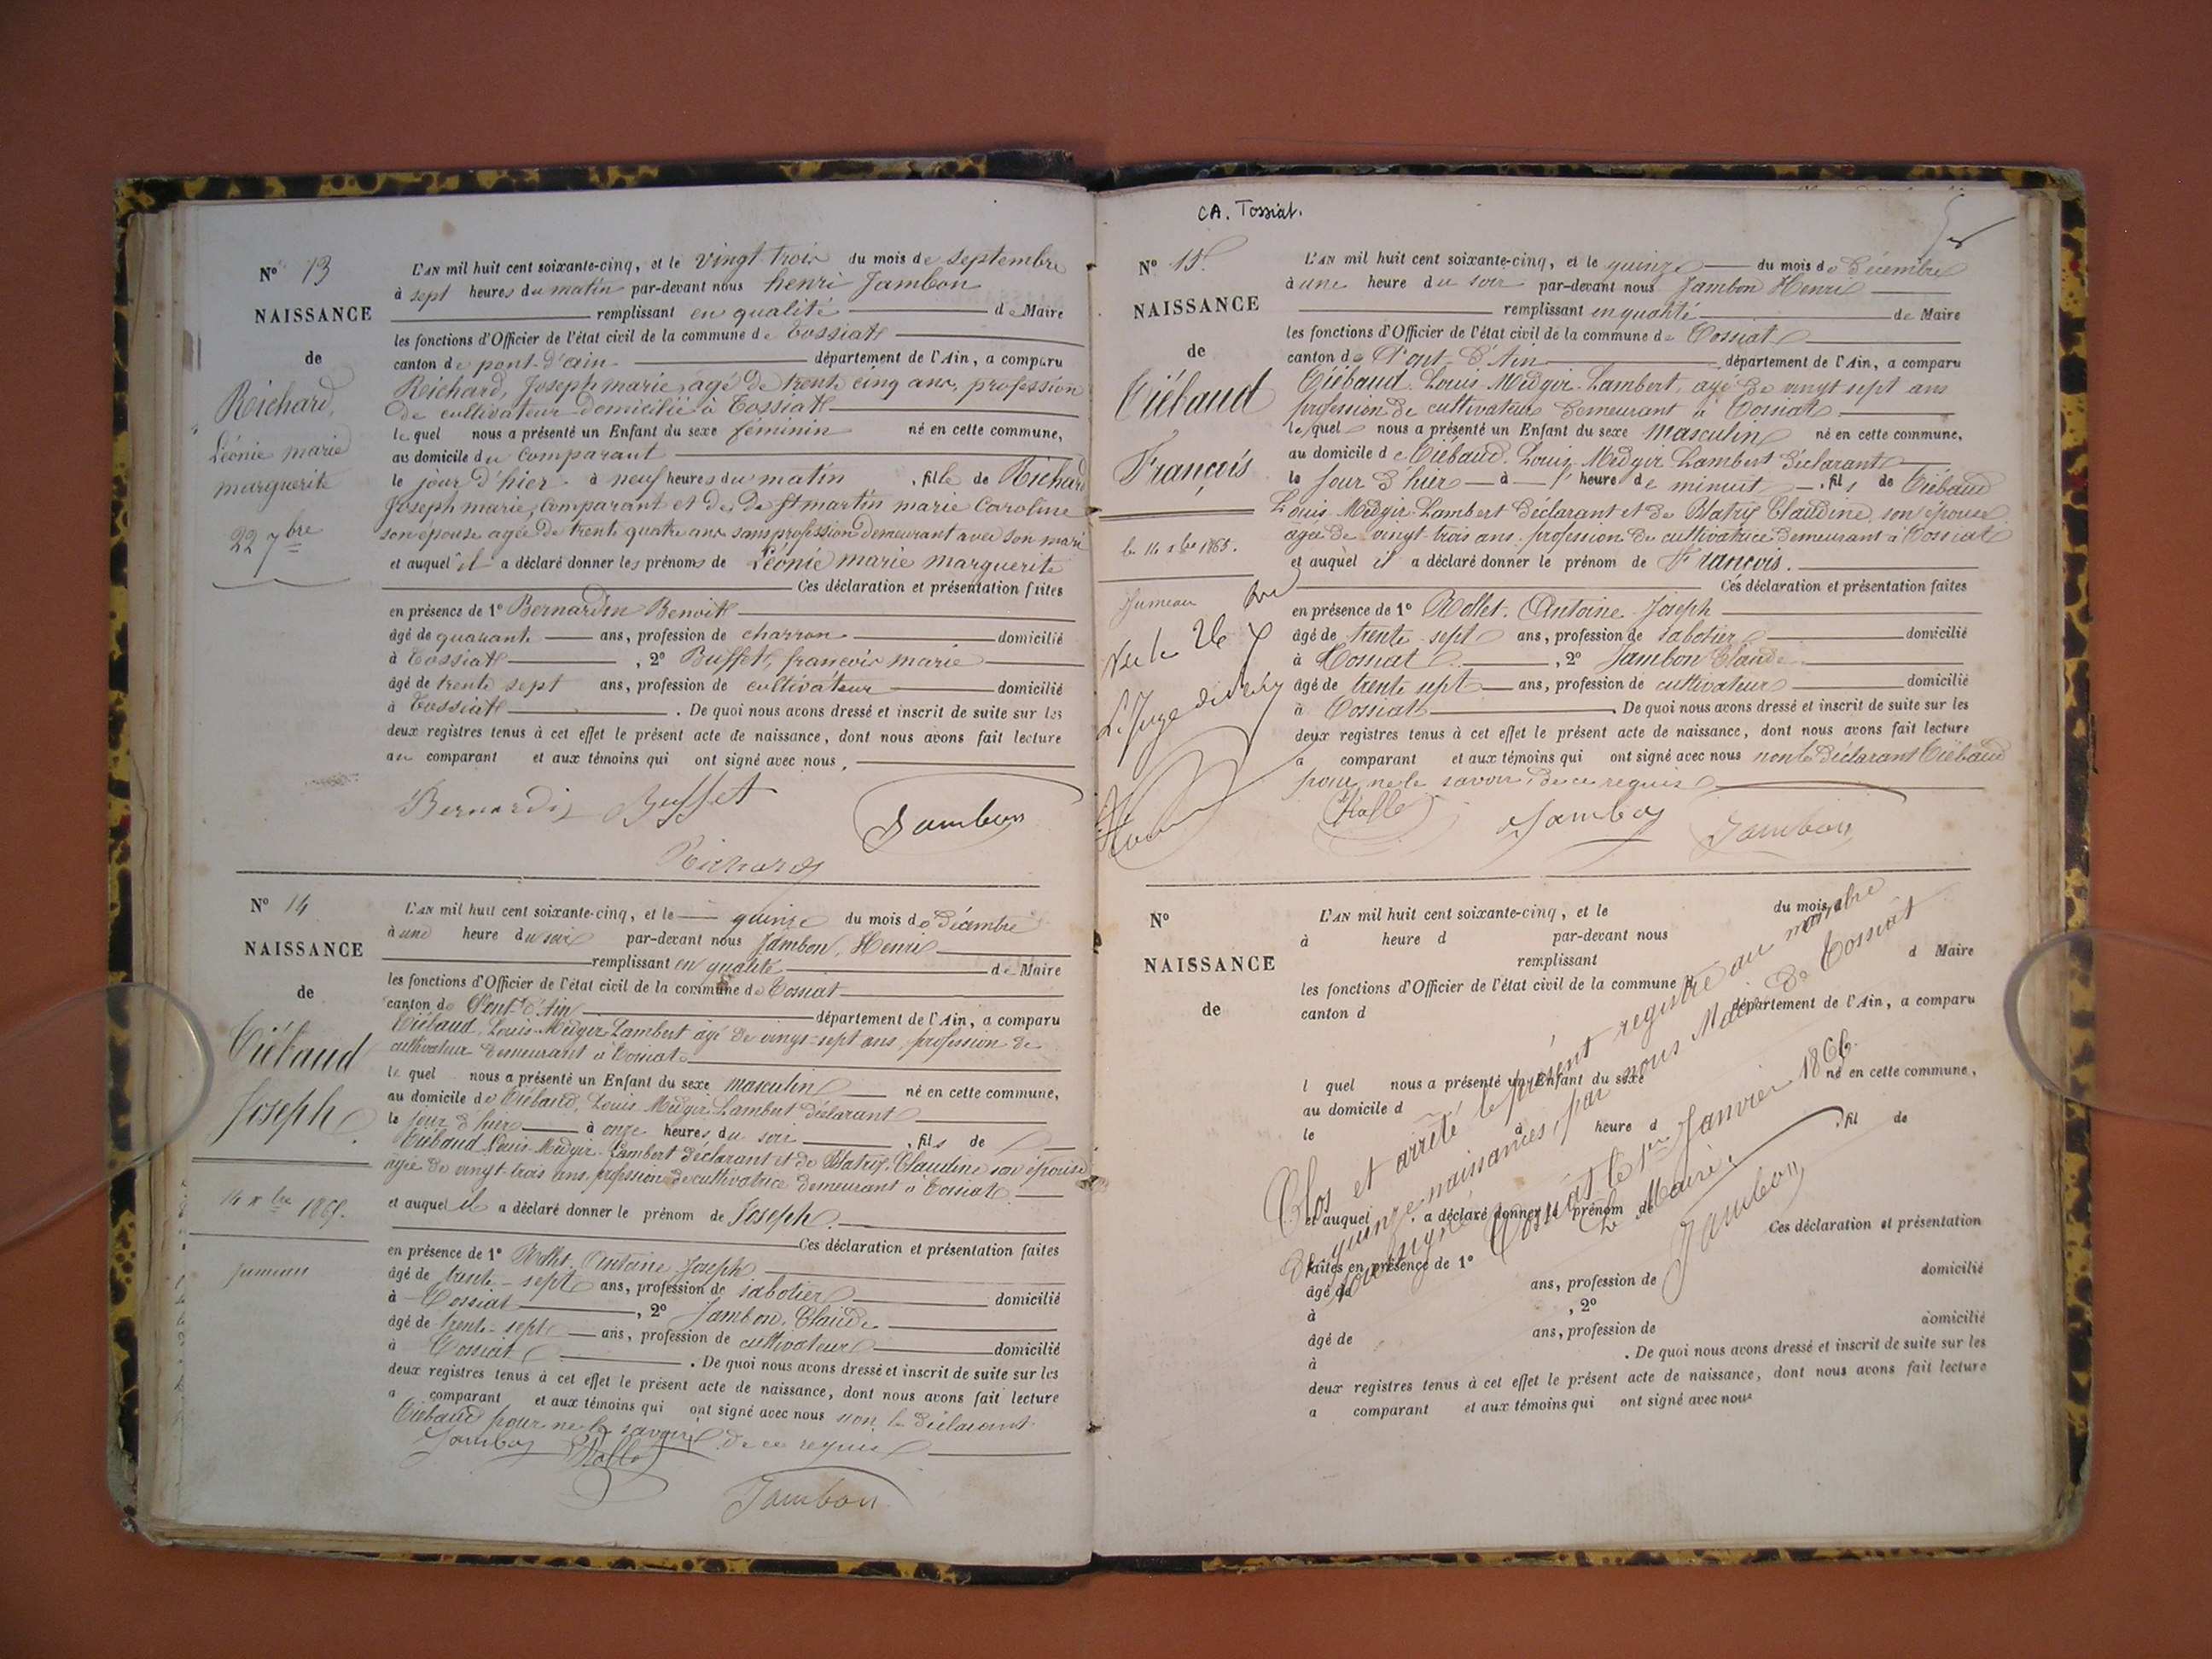 N° 13
NAISSANCE
de
Richard,
Léonie marie
marguerite
22 7bre
L'AN mil huit cent soixante-cinq, et le vingt trois du mois de septembre
à sept heures du matin par-devant nous henri Jambon
remplissant en qualité de Maire
les fonctions d'Officier de l'état civil de la commune de tossiat
canton de pont-d'ain département de l'Ain, a comparu
Richard, Joseph marie, agé de trente cinq ans, profession
de cultivateur domicilié à tossiat
lequel nous a présenté un Enfant du sexe féminin né en cette commune,
au domicile du comparant
le jour d'hier à neuf heures du matin, fille de Richard
Joseph marie, comparant et de de St martin marie Caroline
son épouse agée de trente quatre ans sans profession demeurant avec son mari
et auquel il a déclaré donner les prénoms de Léonie marie marguerite
Ces déclaration et présentation faites
en présence de 1° Bernardin Benoit
âgé de quarante ans, profession de charron domicilié
à tossiat, 2° Buffet, francois marie
âgé de trente sept ans, profession de cultivateur domicilié
à tossiat. De quoi nous avons dressé et inscrit de suite sur les
deux registres tenus à cet effet le présent acte de naissance, dont nous avons fait lecture
au comparant et aux témoins qui ont signé avec nous.
Bernardin Buffet Jambon
Richard
N° 14
NAISSANCE
de
Tiébaud
Joseph
14 xbre 1865.
jumeau
L'AN mil huit cent soixante-cinq, et le quinze du mois de Décembre
à une heure du soir par-devant nous Jambon, Henri
remplissant en qualité de Maire
les fonctions d'Officier de l'état civil de la commune de Tossiat
canton de Pont-d'Ain département de l'Ain, a comparu
Tiébaud, Louis-Midgir-Lambert agé de vingt-sept ans, profession de
cultivateur demeurant à Tossiat
lequel nous a présenté un Enfant du sexe masculin né en cette commune,
au domicile de Tiébaud, Louis Midgir Lambert déclarant
le jour d'hier à onze heures du soir, fils de
Tiébaud Louis-Midgir-Lambert déclarant et de Blatrix, Claudine son épouse
agée de vingt-trois ans, profession de cultivatrice demeurant à Tossiat
et auquel il a déclaré donner le prénom de Joseph.
Ces déclaration et présentation faites
en présence de 1° Rollet, Antoine Joseph
âgé de trente-sept ans, profession de sabotier domicilié
à Tossiat, 2° Jambon, Claude
âgé de trente-sept ans, profession de cultivateur domicilié
à Tossiat. De quoi nous avons dressé et inscrit de suite sur les
deux registres tenus à cet effet le présent acte de naissance, dont nous avons fait lecture
a comparant et aux témoins qui ont signé avec nous non le déclarant
Tiébaud pour ne le savoir de ce requis
Jambon Rollet
Jambon
CA. Tossiat.
N° 15.
NAISSANCE
de
Tiébaud
François
le 14 xbre 1865.
Jumeau
L'AN mil huit cent soixante-cinq, et le quinze du mois de Décembre
à une heure du soir par-devant nous Jambon Henri
remplissant en qualité de Maire
les fonctions d'Officier de l'état civil de la commune de Tossiat
canton de Pont-d'Ain département de l'Ain, a comparu
Tiébaud Louis-Midgir-Lambert, agé de vingt sept ans
profession de cultivateur demeurant à Tossiat
lequel nous a présenté un Enfant du sexe masculin né en cette commune,
au domicile de Tiébaud, Louis-Midgir Lambert déclarant
le jour d'hier à heure de minuit, fils de Tiébaud
Louis-Midgir-Lambert déclarant et de Blatrix Claudine, son épouse
agée de vingt trois ans, profession de cultivatrice demeurant à Tossiat
et auquel il a déclaré donner le prénom de François.
Ces déclaration et présentation faites
en présence de 1° Rollet, Antoine Joseph
âgé de trente-sept ans, profession de sabotier domicilié
à Tossiat, 2° Jambon Claude
âgé de trente sept ans, profession de cultivateur domicilié
à Tossiat. De quoi nous avons dressé et inscrit de suite sur les
deux registres tenus à cet effet le présent acte de naissance, dont nous avons fait lecture
a comparant et aux témoins qui ont signé avec nous non le déclarant Tiébaud
pour ne le savoir, de ce requis
Rollet Jambon Jambon
N°
NAISSANCE
de
L'AN mil huit cent soixante-cinq, et le du mois d
à heure d par-devant nous
remplissant d Maire
les fonctions d'Officier de l'état civil de la commune d
canton d département de l'Ain, a comparu
l quel nous a présenté un Enfant du sexe né en cette commune,
au domicile d
le à heure d, fil de
et auquel a déclaré donner le prénom de
Ces déclaration et présentation
faites en présence de 1°
âgé de ans, profession de domicilié
à, 2°
âgé de ans, profession de domicilié
à. De quoi nous avons dressé et inscrit de suite sur les
deux registres tenus à cet effet le présent acte de naissance, dont nous avons fait lecture
a comparant et aux témoins qui ont signé avec nous
Clos et arrêté le présent registre au nombre
de quinze naissances, par nous Maire de Tossiat
soussigné Tossiat le 1er Janvier 1866.
Le Maire.
Jambon